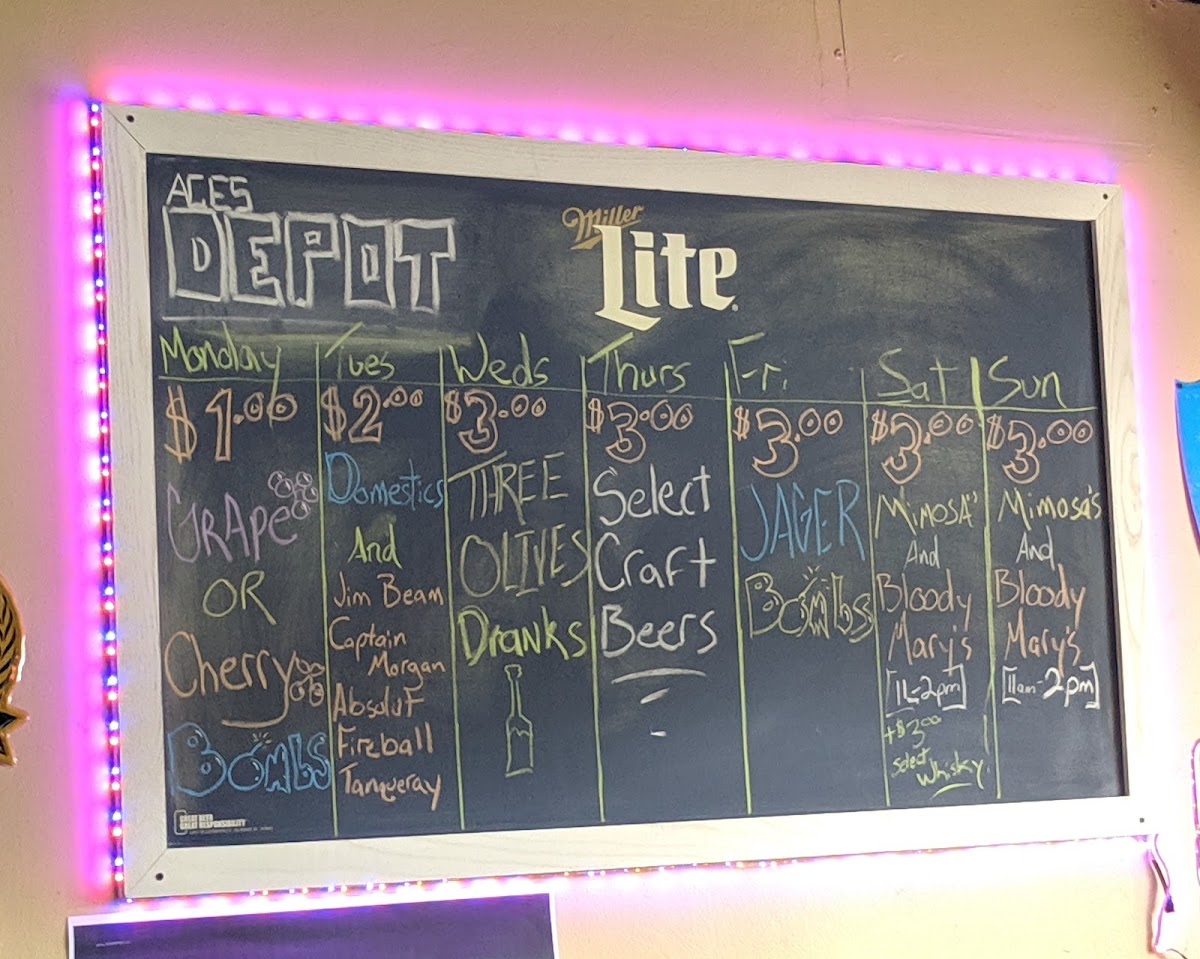 ACES
DEPOT
Miller
Lite
Monday
$1.00
GRAPE
OR
Cherry
BOMBS
Tues
$2.00
Domestics
And
Jim Beam
Captain
Morgan
Absolut
Fireball
Tanqueray
Weds
$3.00
THREE
OLIVES
Dranks
Thurs
$3.00
Select
Craft
Beers
Fri.
$3.00
JAGER
BOMbs
Sat
$3.00
MiMOSA's
And
Bloody
Mary's
[11-2pm]
+$3.00
Select
Whisky
Sun
$3.00
Mimosa's
And
Bloody
Mary's
[11am-2pm]
GREAT BEER
GREAT RESPONSIBILITY